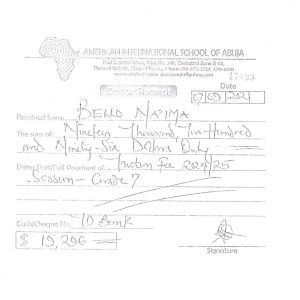 AMERICAN INTERNATIONAL SCHOOL OF ABUJA
Durumi District, Abuja - Nigeria. Phone: 09-
17433
Official Receipt
Date
Received from BELLO NAIMA
The sum of Nineteen Thousand Two Hundred
and Ninety-Six Dollars Only
Being Part/Full Payment of Tuition Fee 2024/25
Session - Grade 7
Cash/Cheque No. TD Bank
$ 19,296
Signature